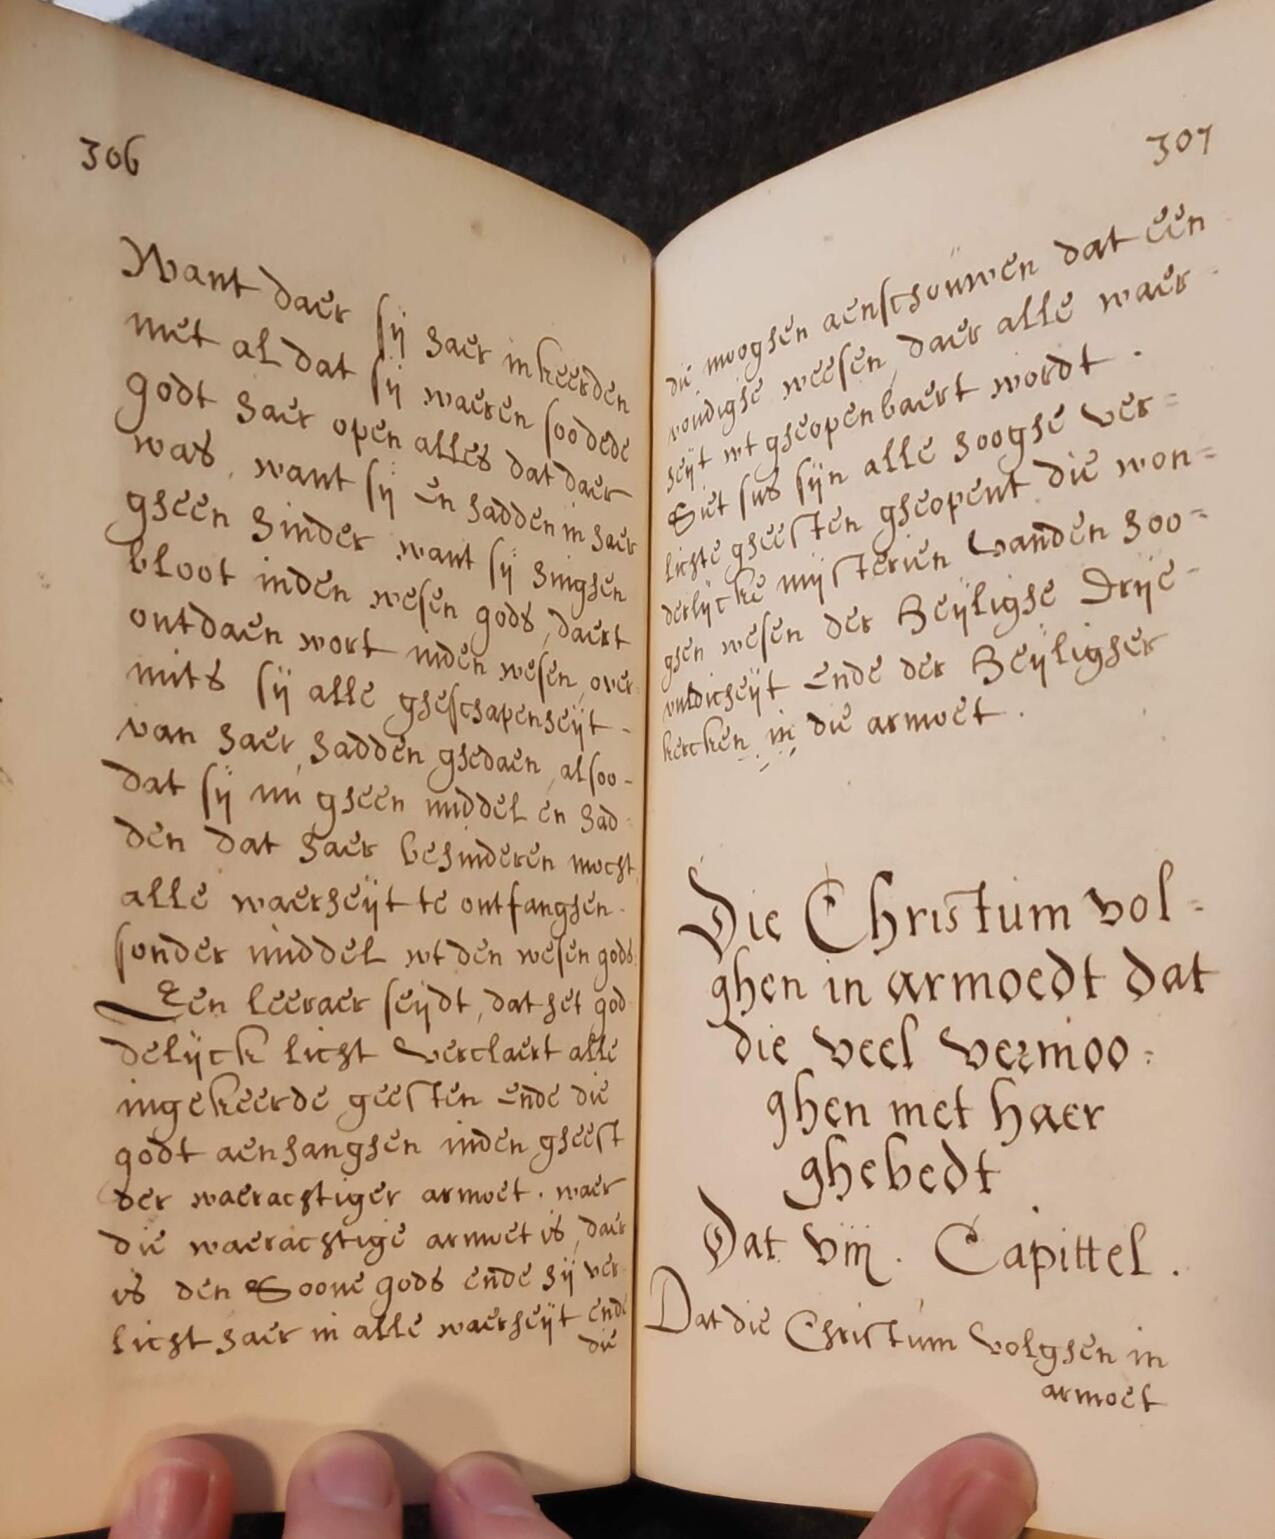 306
Want daer sij haer in keerden
met al dat sij waeren soo dede
godt haer open alles dat daer
was, want sij en hadden in haer
gheen hinder want sij hinghen
bloot inden wesen gods, daert
ontdaen wort inden wesen, over-
mits sij alle gheschapenheijt -
van haer, hadden ghedaen, alsoo -
dat sij nu gheen middel en had-
den dat haer behinderen mocht
alle waerheijt te ontfanghen -
sonder middel wt den wesen gods
Een leeraer seijdt, dat het god-
delijck licht verclaert alle
ingekeerde geesten ende die
godt aenhanghen inden gheest
der waerachtiger armoet. waer
die waerachtige armoet is, daer
is den Soone gods ende hij ver-
licht haer in alle waerheijt ende
die
307
die mooghen aenschouwen dat een
voudighe weesen, daer alle waer -
heijt wt gheopenbaert wordt.
Siet sus sijn alle hooghe ver =
lichte gheesten gheopent die won =
derlijcke mijsterien vanden hoo =
ghen wesen der Heijlighe Drije -
vuldicheijt ende der Heijligher
kercken in die armoet.
Die Christum vol =
ghen in armoedt dat
die veel vermoo =
ghen met haer
ghebedt
Dat viij. Capittel.
Dat die Christum volghen in
armoet